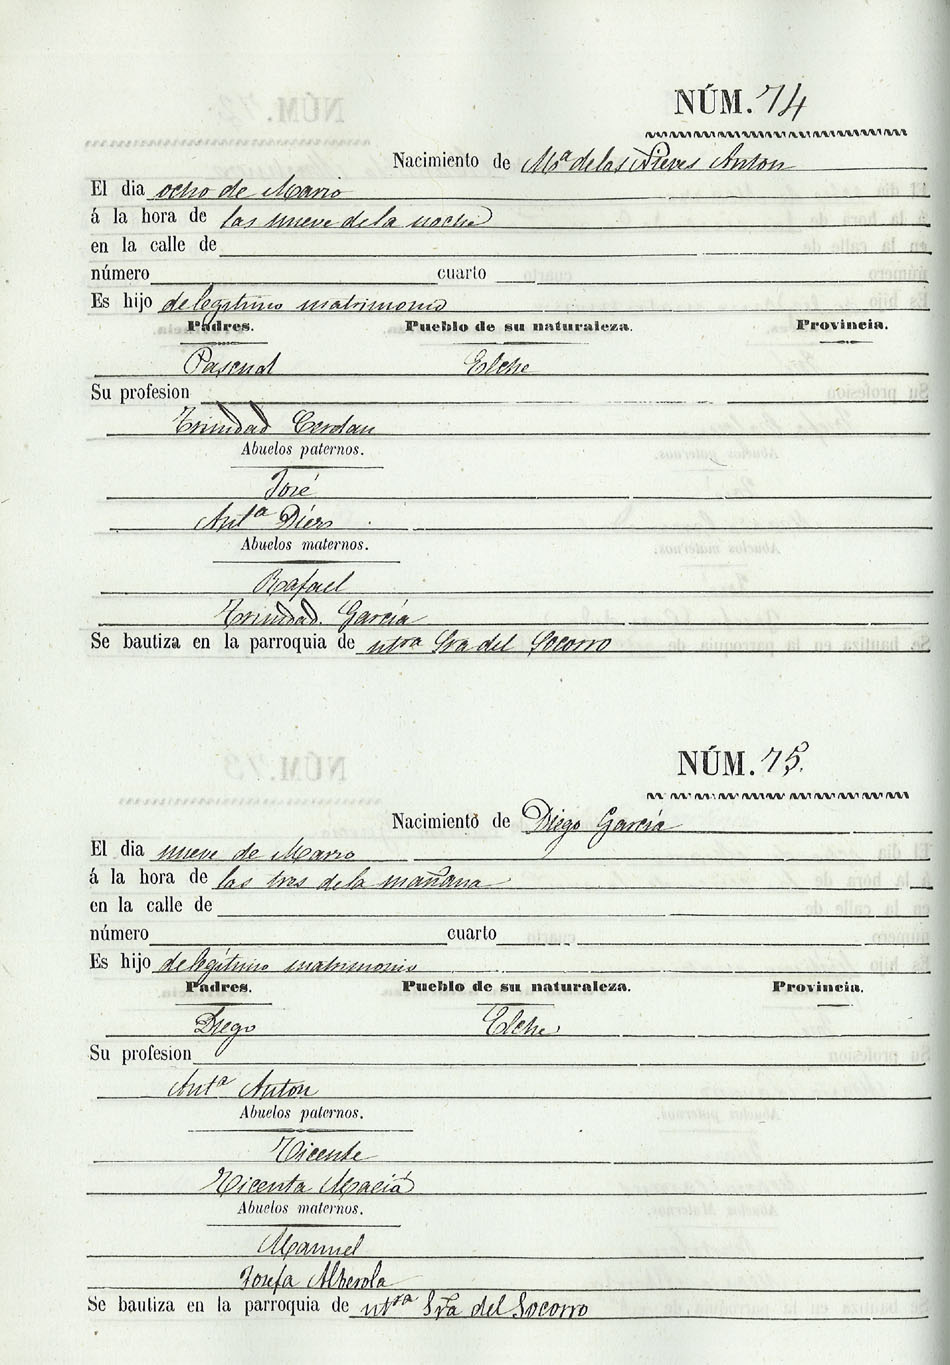 NÚM. 74
Nacimiento de Mª de las Nieves Anton
El dia ocho de Marzo
á la hora de las nueve de la noche
en la calle de
número cuarto
Es hijo de legitimo matrimonio
Padres. Pueblo de su naturaleza. Provincia.
Pascual Elche
Su profesion
Trinidad Cerdan
Abuelos paternos.
José
Antª Diers
Abuelos maternos.
Rafael
Trinidad Garcia
Se bautiza en la parroquia de ntra Sra del Socorro
NÚM. 75.
Nacimiento de Diego García
El dia nueve de Marzo
á la hora de las tres de la mañana
en la calle de
número cuarto
Es hijo de legítimo matrimonio
Padres. Pueblo de su naturaleza. Provincia.
Diego Elche
Su profesion
Antª Anton
Abuelos paternos.
Vicente
Vicenta Maciá
Abuelos maternos.
Manuel
Josefa Alberola
Se bautiza en la parroquia de ntra Sra del Socorro